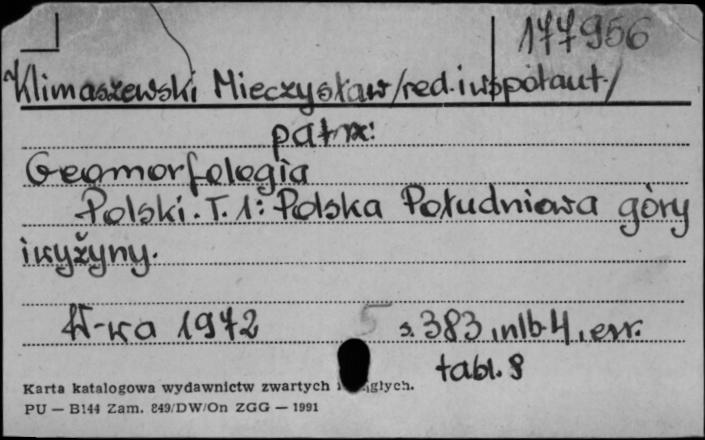 177956
Klimaszewski Mieczysław /red. i współaut./
patrz:
Geomorfologia
Polski. T. 1: Polska Południowa góry
i wyżyny.
W-wa 1972 s. 383, nlb. 4, err.
tabl. 8
Karta katalogowa wydawnictw zwartych
PU — B144 Zam. 849/DW/On ZGG — 1991